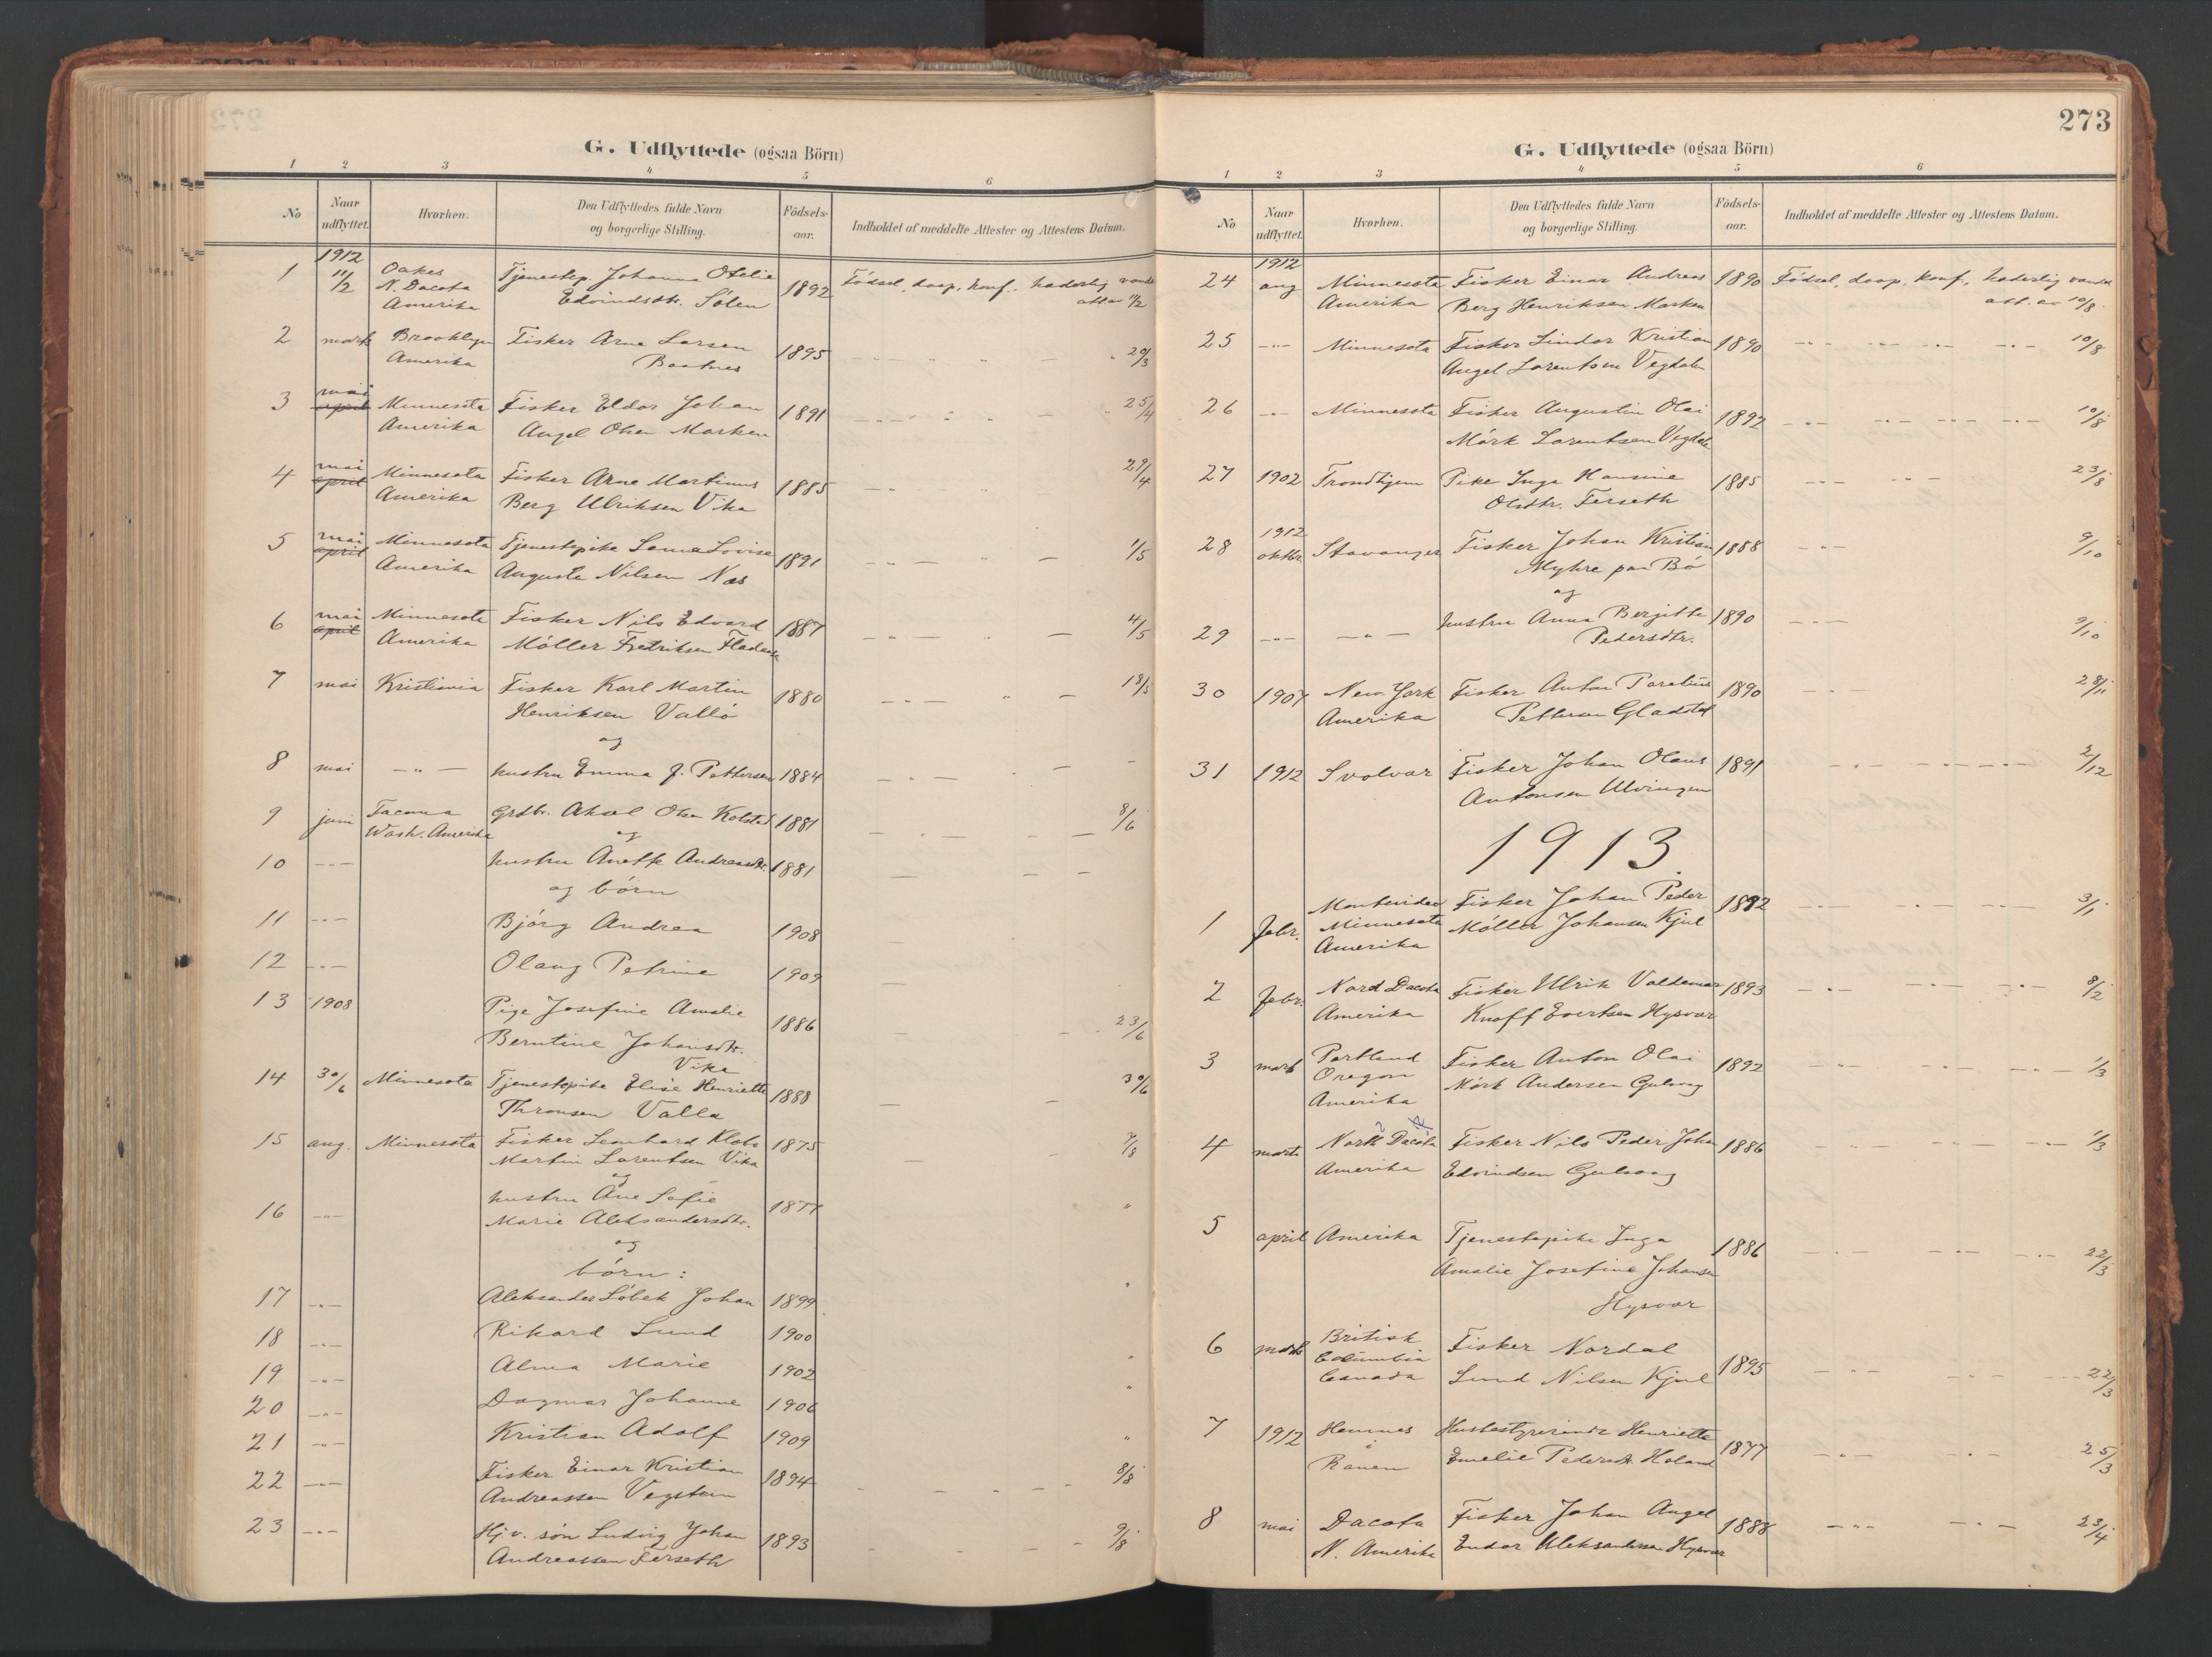 G. Udflyttede (ogsaa Börn)
1 2 3 4 5 6
No Naar udflyttet. Hvorhen. Den Udflyttedes fulde Navn og borgerlige Stilling. Födsels-aar. Indholdet af meddelte Attester og Attestens Datum.
1912
1 11/2 Oakes Tjenestep. Johanna Otelie 1892 Födsel, daap, konf., hæderlig vandel
N. Dacota Edvindsdtr. Sólen att av 11/2
Amerika
2 marts Brooklyn Fisker Arne Larsen 1895 20/3
Amerika Baatnes
3 mai april Minnesota Fisker Eldor Johan 1891 25/4
Amerika Angel Olsen Marken
4 mai april Minnesota Fisker Arne Martinus 1885 29/4
Amerika Berg Ulriksen Vika
5 mai april Minnesota Tjenestepike Lovise 1891 1/5
Amerika Augusta Nilsen Næs
6 mai april Minnesota Fisker Nils Edvard 1887 4/5
Amerika Möller Fredriksen
7 mai Kristiania Fisker Karl Martin 1880 18/5
Henriksen Valló
og
8 mai — " — hustru Emma J. Pettersen 1884 –
9 juni Tacoma Grdbr. Aksel Olsen Kolstad 1881 8/6
Wash. Amerika og
10 — " — hustru Anette Andreasdtr. 1881
og börn
11 — " — Bjórg Andrea 1908
12 — " — Olaug Petrine 1909
13 1908 Pige Josefine Amalie 1886 23/6
Berntine Johansdtr.
Vika
14 30/6 Minnesota Tjenestepike Elise Henriette 1888 30/6
Thronsen Valla
15 aug. Minnesota Fisker Leonhard Klebo 1875 7/8
Martin Lorentsen Vika
og
16 — " — hustru Ane Sofie 1877 "
Marie Aleksandersdtr.
og
börn :
17 — " — Aleksander Löbek Johan 1899 "
18 — " — Rikard Lund 1900
19 — " — Alma Marie 1902 "
20 — " — Dagmar Johanne 1906 "
21 — " — Kristian Adolf 1909 "
22 — " — Fisker Einar Kristian 1894 8/8
Andreassen Vegstein
23 — " — Hj.v. són Ludvig Johan 1893 9/8
Andreassen Ferseth
273
G. Udflyttede (ogsaa Börn)
1 2 3 4 5 6
No Naar udflyttet. Hvorhen. Den Udflyttedes fulde Navn og borgerlige Stilling. Födsels-aar. Indholdet af meddelte Attester og Attestens Datum.
1912
24 aug Minnesota Fisker Einar Andreas 1890 Födsel, daap, konf., hæderlig vandel
Amerika Berg Henriksen Marken att. av 10/8.
25 — " — Minnesota Fisker Lindor Kristian 1890 10/8
Angel Lorentsen Vegdalen
26 — " — Minnesota Fisker Augustin Olai 1892 10/8
Mórk Lorentsen Vegdalen
27 1902 Trondhjem Pike Inga Hansine 1885 23/8
Olsdtr. Ferseth
28 1912 oktbr Stavanger Fisker Johan Kristian 1888 9/10
Myhre paa Bó
og
29 — " — — " — hustru Anna Bergitte 1890 9/10
Pedersdtr.
30 1907 New York Fisker Anton Parelius 1890 28/11
Amerika Pettersen Gladstad
31 1912 Svolvær Fisker Johan Olaus 1891 2/12
Antonsen Ulvingen
1913.
1 febr. Montevideo Fisker Johan Peder 1882 3/1
Minnesota Möller Johansen Kjul
Amerika
2 febr. Nord Dacota Fisker Ulrik Valdemar 1893 8/2
Amerika Knoff Evertsen Hysvær
3 marts Portland Fisker Anton Olai 1892 1/3
Oregon Mörk Andersen Gulsvag
Amerika
4 marts North Dacota Fisker Nils Peder Johan 1886 1/3
Amerika Edvindsen Gulsvag
5 april Amerika Tjenestepike Inga 1886 22/3
Amalie Josefine Johansen
Hysvær
6 marts British Fisker Nordal 1895 22/3
Columbia Lund Nilsen Kjul
Canada
7 1912 Hemnes Husbestyrerinde Henriette 1877 25/3
i Emelie Pedersdtr. Holand
Ranen
8 mai Dacota Fisker Johan Angel 1888 23/4
N. Amerika Endor Aleksandersen Hysvær